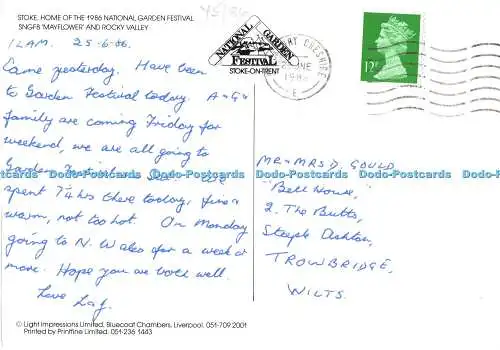 STOKE, HOME OF THE 1986 NATIONAL GARDEN FESTIVAL
SNGF8 'MAYFLOWER' AND ROCKY VALLEY
ILAM. 25-6-86.
Came yesterday. Have been
to Garden Festival today. A + G +
family are coming Friday for
weekend, we are all going to
Garden Festival
spent 7¼ hrs there today, fine &
warm, not too hot. On Monday
going to N. Wales for a week or
more. Hope you are both well.
Love
© Light Impressions Limited, Bluecoat Chambers, Liverpool. 051-709 2001
Printed by Printfine Limited. 051-236 1443
NATIONAL GARDEN
FESTIVAL
STOKE-ON-TRENT
CHESHIRE
12P
MR & MRS D. GOULD
"Bell House,"
2. The Butts,
Steeple Ashton,
TROWBRIDGE,
WILTS.
Dodo-Postcards Dodo-Postcards Dodo-Postcards Dodo-Postcards Dodo-Postcards